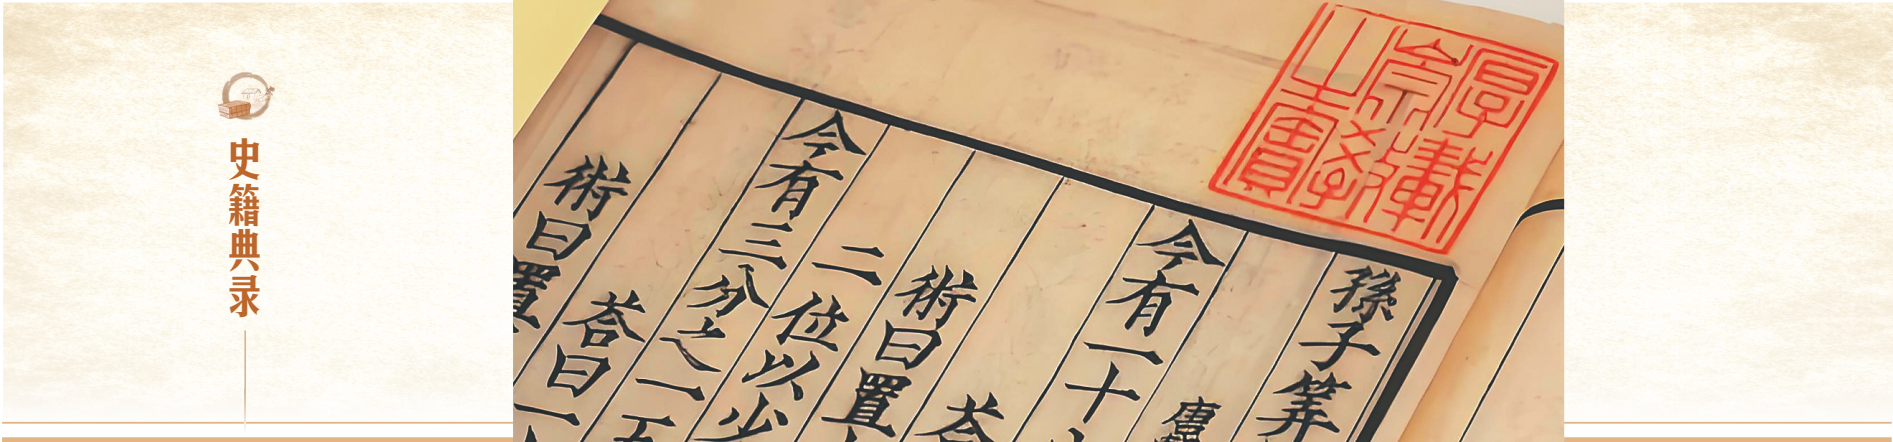 史籍典录
孫子筭
唐
今有一十
荅
術曰置
二位以少
今有三分之一五
荅曰一
術曰置